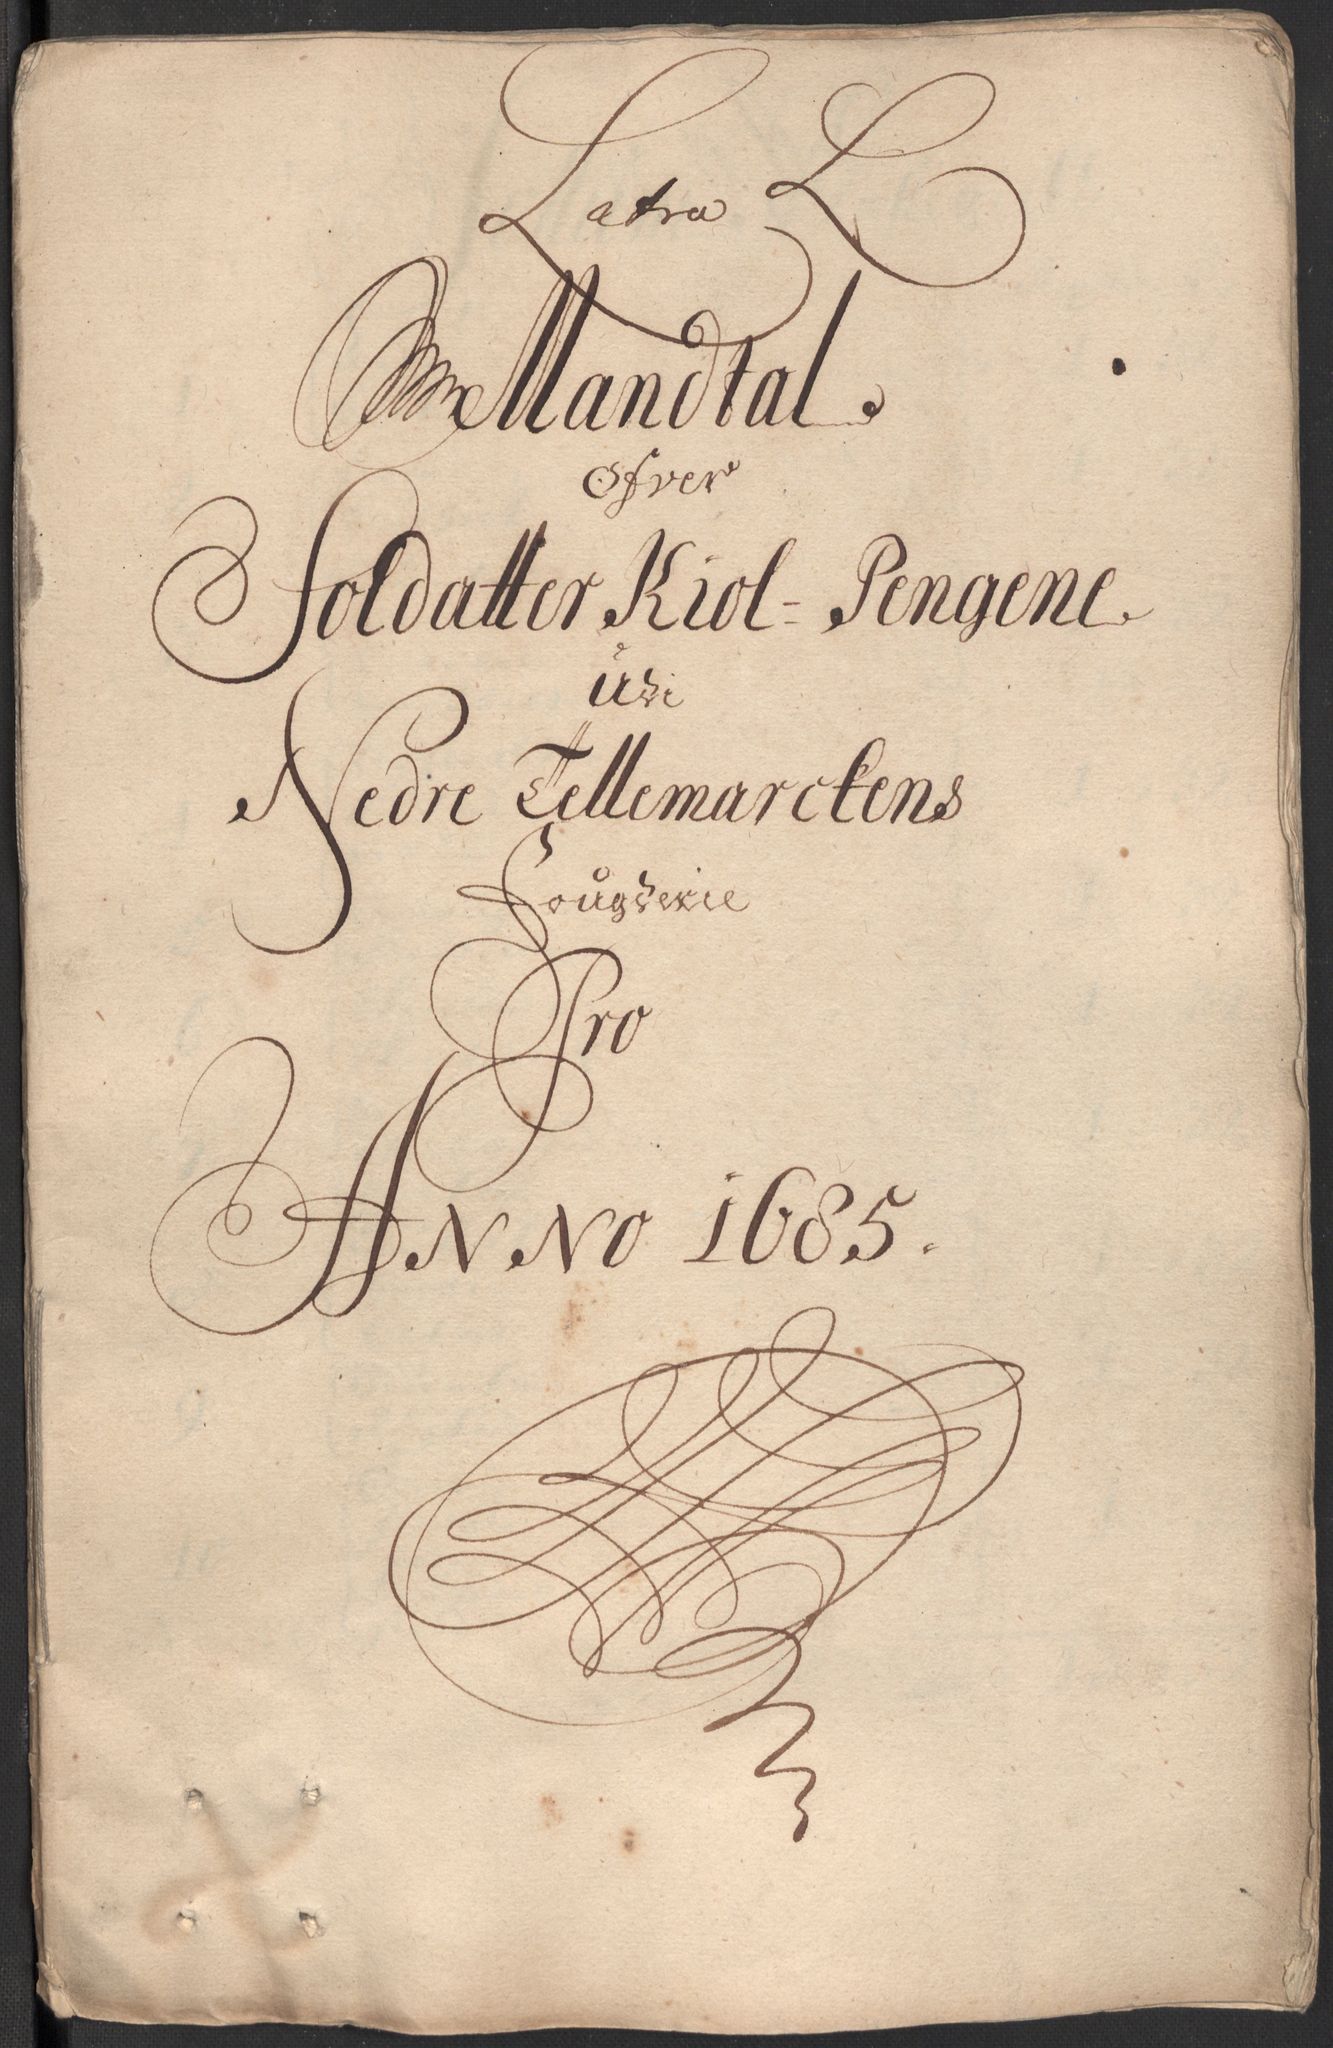 Latra L
Mandtal.
Ofver
Soldatter Kiol= Pengene.
Udi
Nedre Tellemarckens
Fougderie
Pro
ANNo 1685.